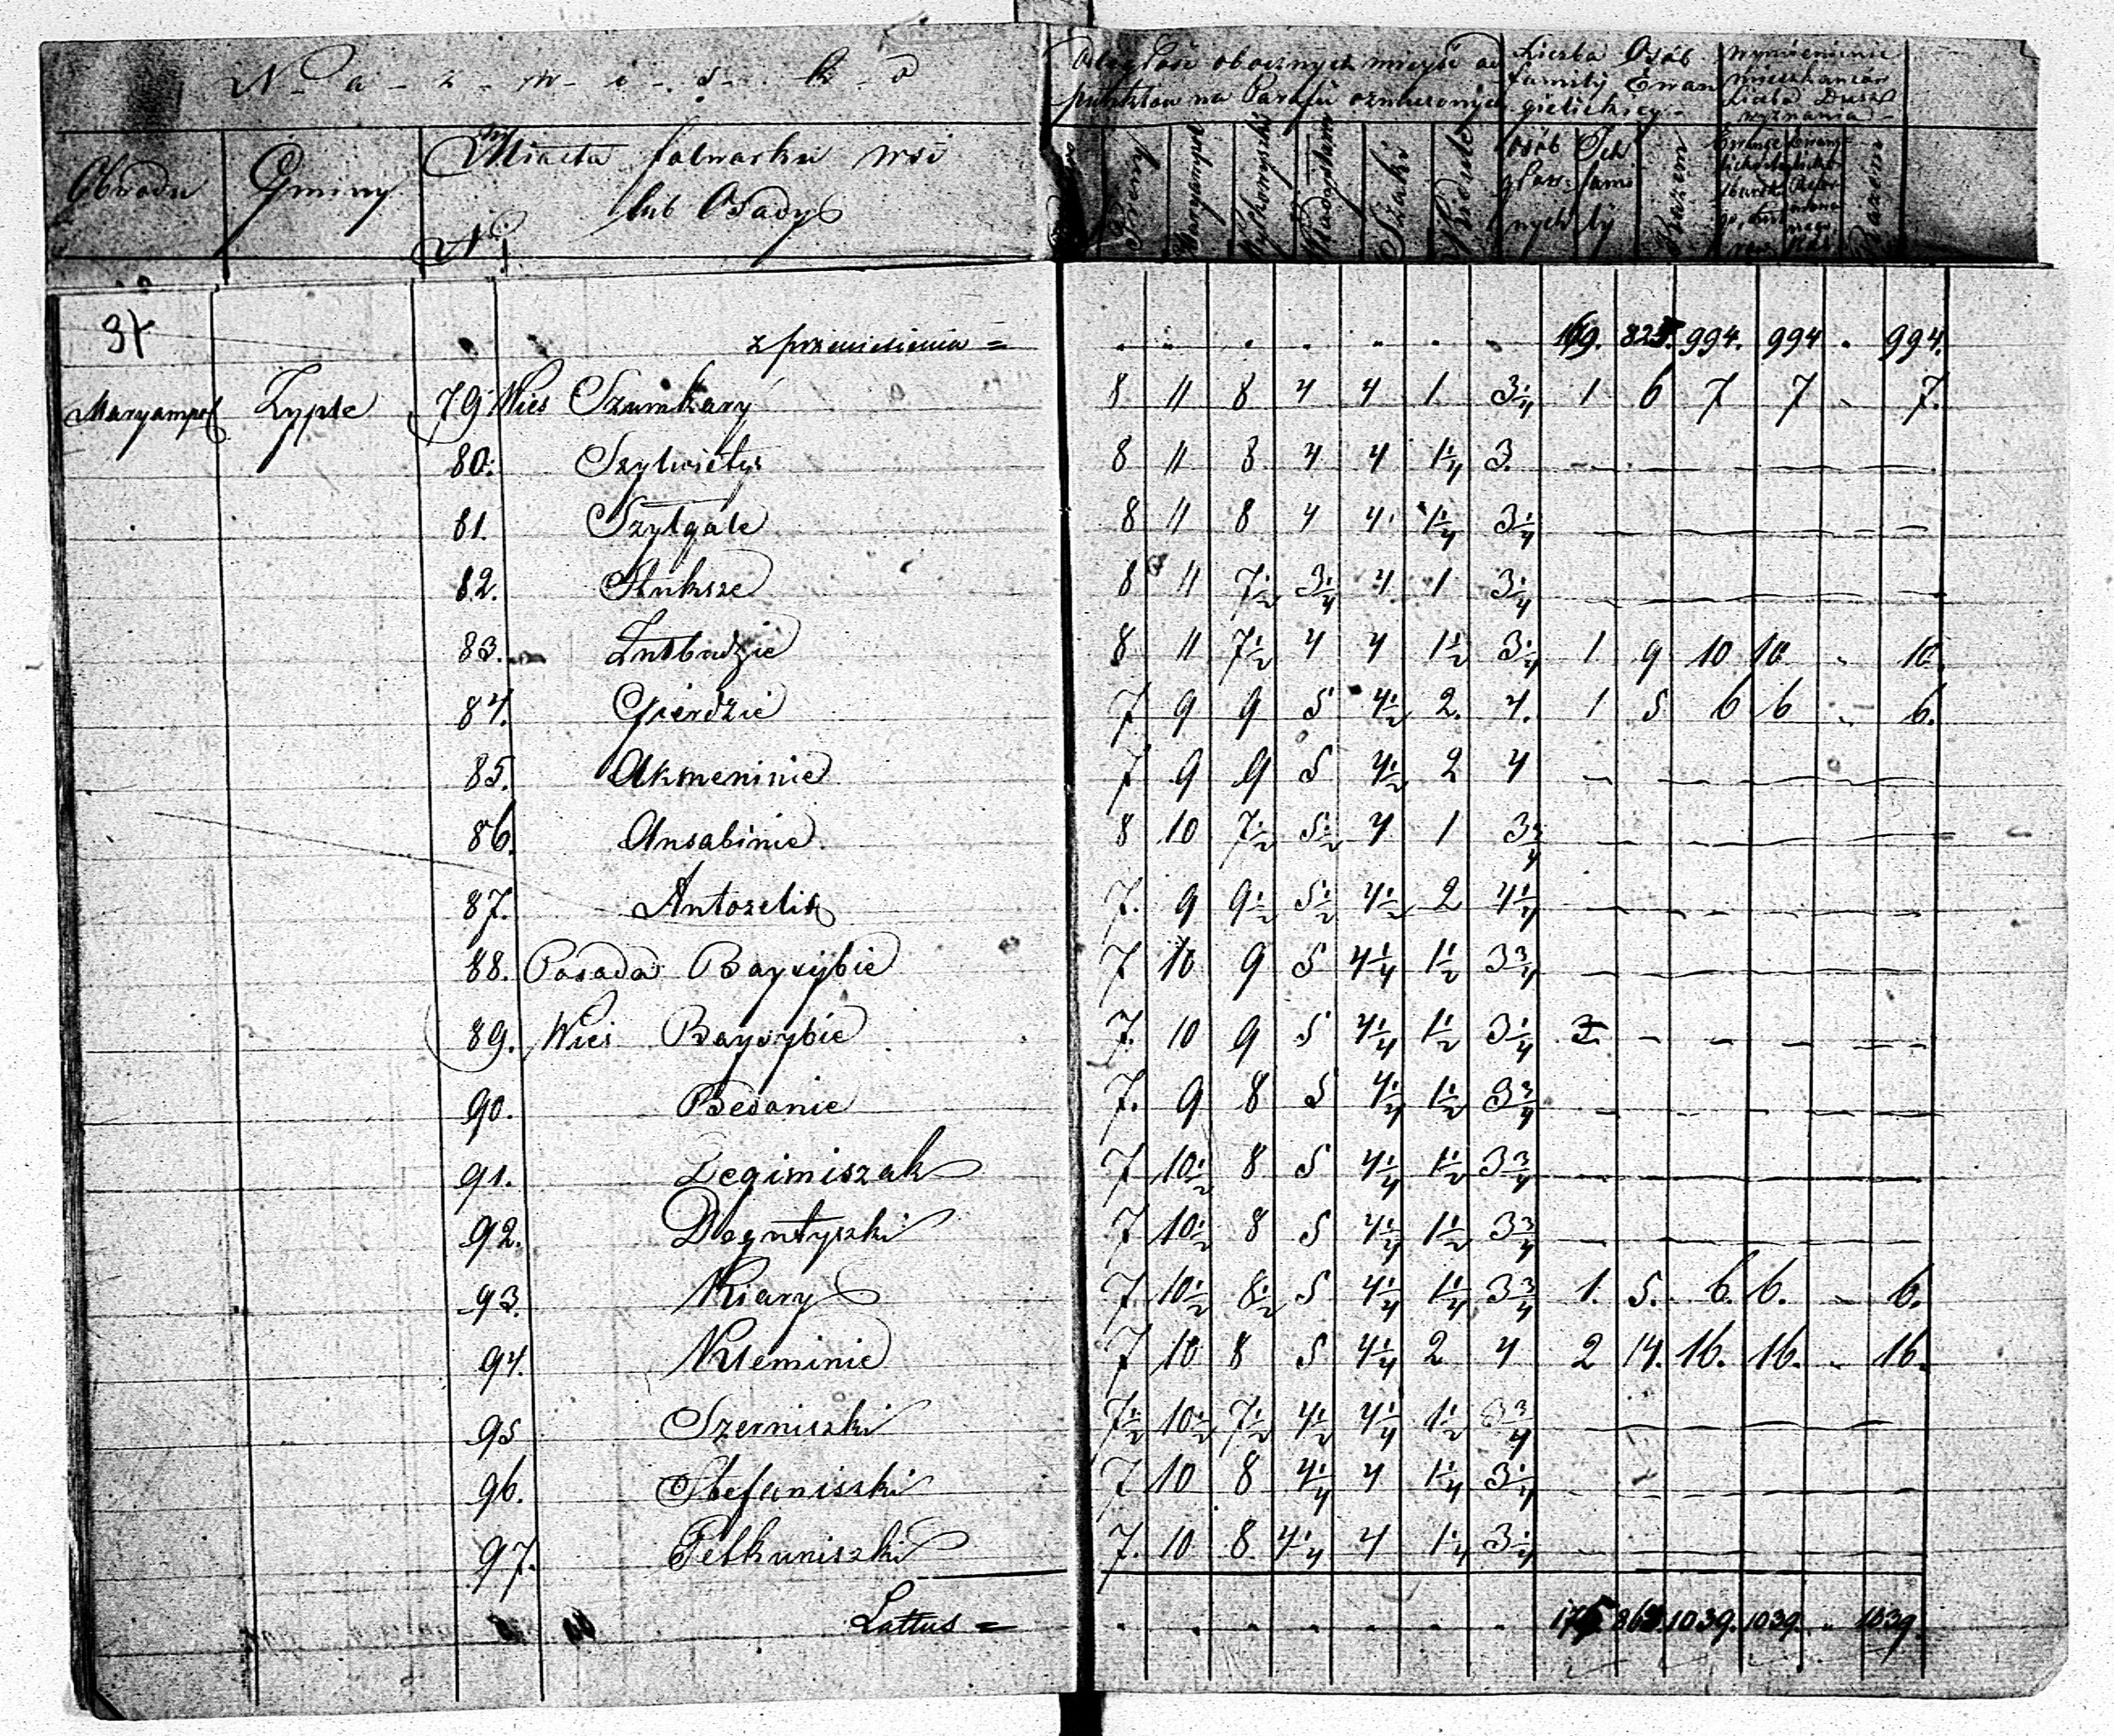 N a z w i s k o
Odległość obocznych mieysc od
punktów na Parafii oznaczonych
Liczba Osób
familij Ewan
gielickiey
Wymienienie
mieszkańców
Liczba Dusz
wyznania
Obwodu Gminy Miasta folwarku wsi
lub Osady
N
Maryampol Wyłkowyszki Władysławów Szaki Kidule
osób głow nych Ich fami ly Razem Razem
34
z przeniesienia = 169. 825. 994. 994 " 994.
Maryampol Zyple 79 Wieś Szumkary 8 11 8 4 4 1 3 1/4 1 6 7 7 " 7.
80. Szylwiety 8 11 8 4 4 1 1/4 3. — — — — —
81. Szylgale 8 11 8 4 4 1 1/4 3 1/4 — — — — —
82. Stuksze 8 11 7 1/2 3 1/4 4 1 3 1/4 — — — — —
83. 8 11 7 1/2 4 4 1 1/2 3 1/4 1 9 10 10 " 10.
84. Gierdzie 7 9 9 5 4 1/2 2. 4. 1 5 6 6 " 6.
85. Akmeninie 7 9 9 5 4 1/2 2 4 — — — — —
86. Ansabinie 8 10 7 1/2 5 1/2 4 1 3 3/4 — — — — —
87. Antoselis 7. 9 9 1/2 5 1/2 4 1/2 2 4 1/4 — — — — —
88. Posada Bayrybie 7 10 9 5 4 1/4 1 1/2 3 3/4 — — — — —
89. Wieś Bayrybie 7. 10 9 5 4 1/4 1 1/2 3 1/4 — — — — —
90. Bedanie 7. 9 8 5 4 1/4 1 1/2 3 3/4 — — — — —
91. Degimiszak 7 10 1/2 8 5 4 1/4 1 1/2 3 3/4 — — — — —
92. Degutyszki 7 10 1/2 8 5 4 1/4 1 1/2 3 3/4 — — — — —
93. Kiary 7 10 1/2 8 1/2 5 4 1/4 1 1/4 3 3/4 1. 5. 6. 6. " 6.
94. Kleminie 7 10 8 5 4 1/4 2 4 2 14. 16. 16. " 16.
95 Szerniszki 7 1/2 10 1/2 7 1/2 4 1/2 4 1/4 1 1/2 3 3/4 — — — — —
96. Stefaniszki 7 10 8 4 1/4 4 1 1/4 3 1/4 — — — — —
97. Petkuniszki 7. 10 8 4 1/4 4 1 1/4 3 1/4 — — — — —
Lattus = 175 864. 1039. 1039. " 1039.